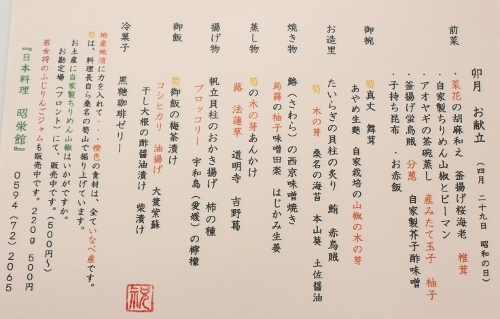 卯月　お献立　（四月　二十九日　昭和の日）
前菜　・菜花の胡麻和え　釜揚げ桜海老　椎茸
・自家製ちりめん山椒とピーマン
・アオヤギの茶碗蒸し　産みたて玉子　柚子
・釜揚げ蛍烏賊　分葱　自家製芥子酢味噌
・子持ち昆布　・お赤飯
御椀　筍真丈　舞茸
あやめ生麩　自家栽培の山椒の木の芽
お造里　たいらぎの貝柱の炙り　鮪　赤烏賊
筍　木の芽　桑名の海苔　本山葵　土佐醤油
焼き物　鰆（さわら）の西京味噌焼き
蒟蒻の柚子味噌田楽　はじかみ生姜
蒸し物　筍の木の芽あんかけ
蕗　法蓮草　道明寺　吉野葛
揚げ物　帆立貝柱のおかき揚げ　柿の種
ブロッコリー　宇和島（愛媛）の檸檬
御飯　筍御飯の梅茶漬け
コシヒカリ　油揚げ　大葉紫蘇
干し大根の酢醤油漬け　柴漬け
冷菓子　黒糖珈琲ゼリー
地産地消に力を入れて・・・橙色の食材は、全ていなべ産です。
筍は、料理長自ら桑名の筍山で掘り上げています。
お土産に自家製ちりめん山椒はいかがですか。
お勘定場（フロント）にて、販売中です。（500円〜）
若女将のふじりんごジャムも販売中です。220g 500円
『日本料理　昭栄館』　0594（72）2065
祝